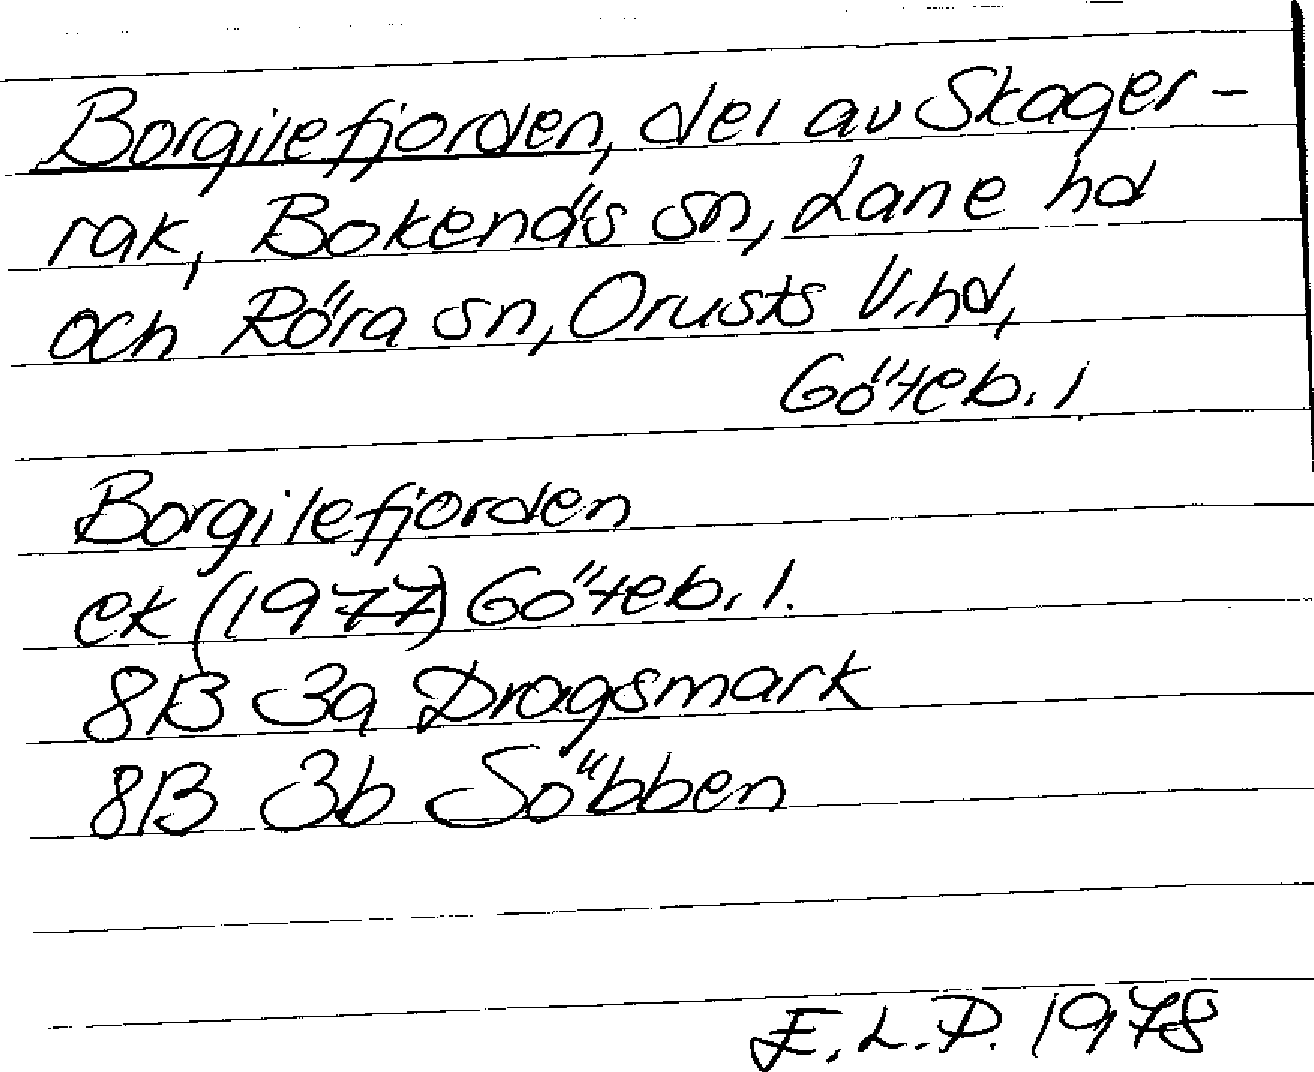 Borgilefjorden, del av Skager-
rak, Bokenäs sn, Lane hd
och Röra sn, Orusts V. hd,
Göteb. l
Borgilefjorden
ek (1977) Göteb. l.
8B 3a Dragsmark
8B 3b Söbben
E. L. P. 1978